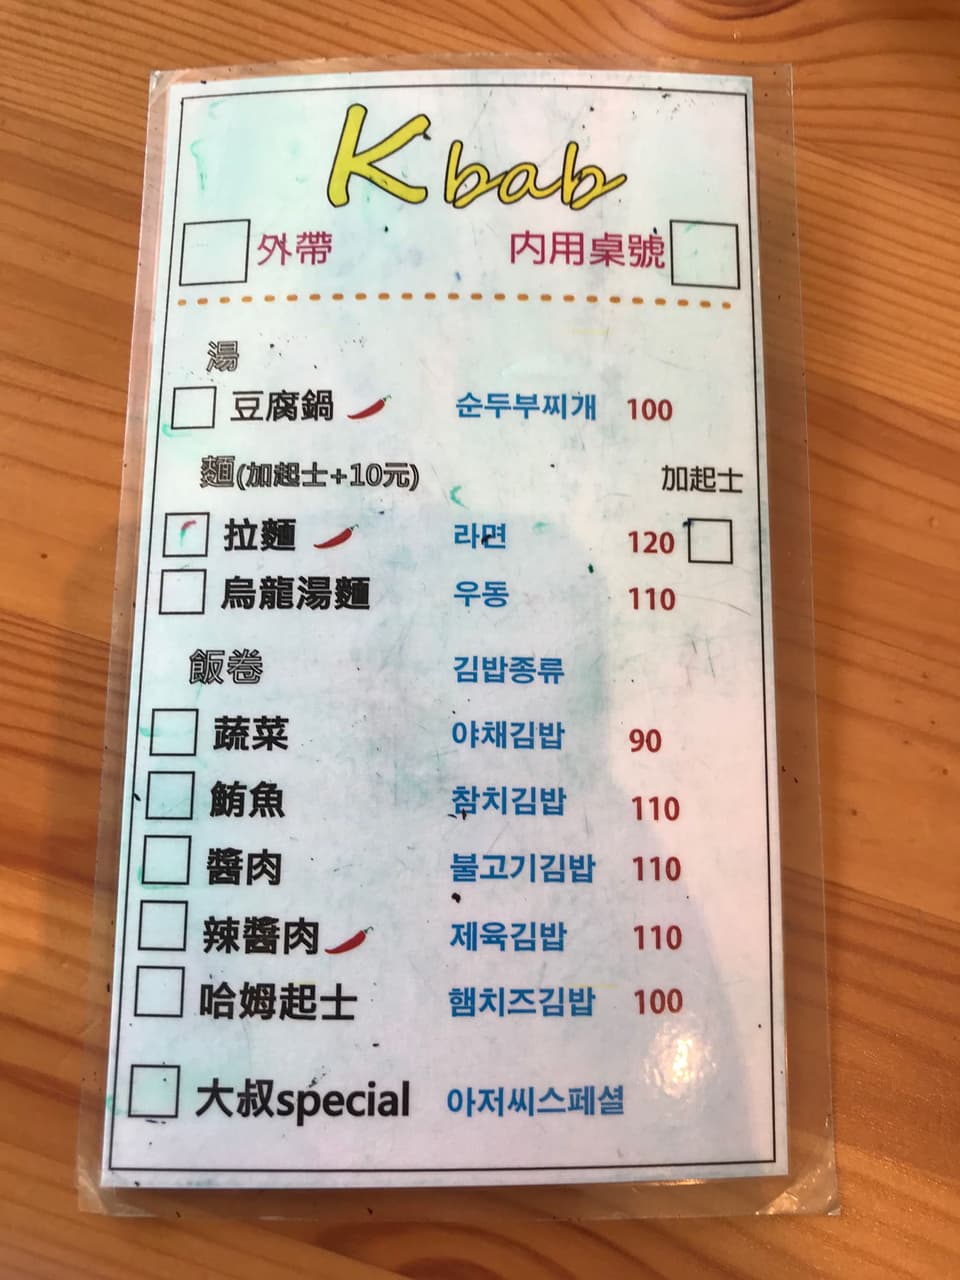 K bab
外帶 內用桌號
湯
豆腐鍋 순두부찌개 100
麵(加起士+10元) 加起士
拉麵 라면 120
烏龍湯麵 우동 110
飯卷 김밥종류
蔬菜 야채김밥 90
鮪魚 참치김밥 110
醬肉 불고기김밥 110
辣醬肉 제육김밥 110
哈姆起士 햄치즈김밥 100
大叔special 아저씨스페셜